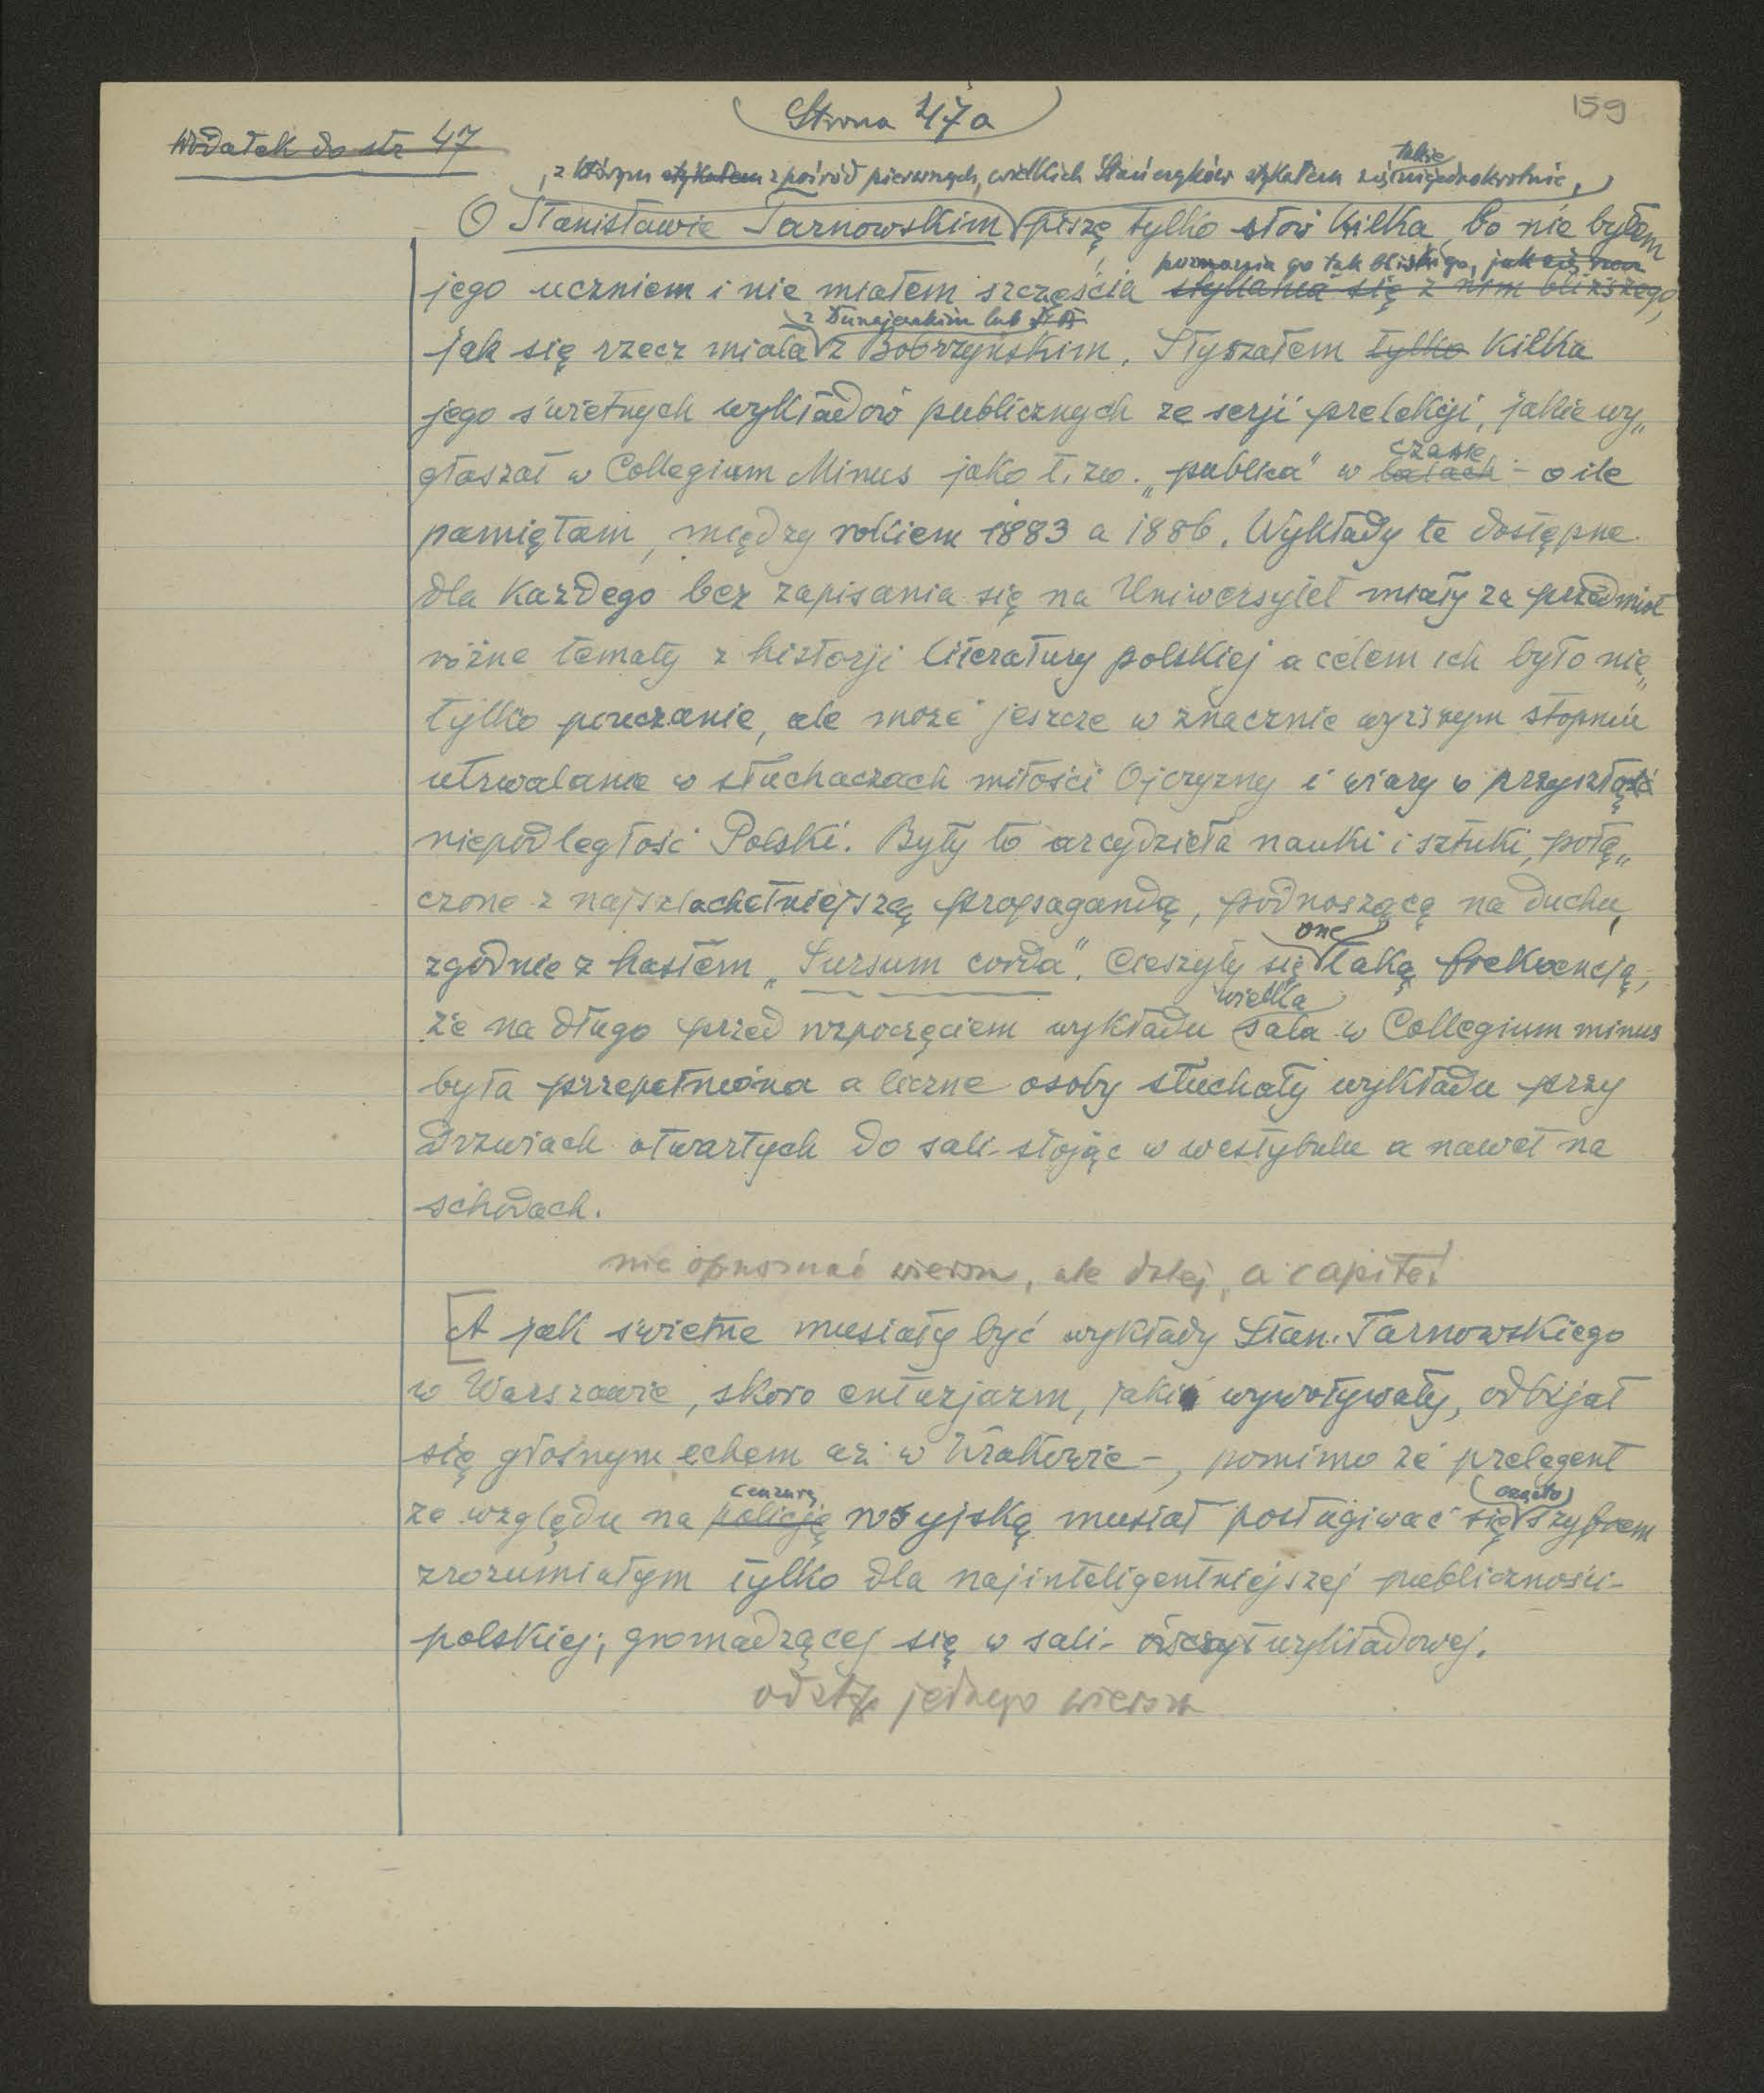 Strona 47a
159
Dodatek do str 47
także
, z którym stykałem z pośród pierwszych, wielkich Stańczyków stykałem się niejednokrotnie,
O Stanisławie Tarnowskim piszę tylko słów kilka, bo nie byłem
poznania go tak bliskiego, jak
jego uczniem i nie miałem szczęścia stykania się z nim bliższego,
z Dunajewskim lub
jak się rzecz miała z Bobrzyńskim. Słyszałem tylko kilka
jego świetnych wykładów publicznych ze serji prelekcji, jakie wy„
czasie
głaszał w Collegium Minus jako t. zw. „publica" w latach - o ile
pamiętam, między rokiem 1883 a 1886. Wykłady te dostępne
dla każdego bez zapisania się na Uniwersytet miały za przedmiot
różne tematy z historji literatury polskiej a celem ich było nie„
tylko pouczanie, ale może jeszcze w znacznie wyższym stopniu
utrwalanie w słuchaczach miłości Ojczyzny i wiary w przyszłą
niepodległość Polski. Były to arcydzieła nauki i sztuki, połą„
czone z najszlachetniejszą propagandą, podnoszącą na duchu,
one
zgodnie z hasłem „Sursum corda". Cieszyły się taką frekwencją,
wielka
że na długo przed rozpoczęciem wykładu sala w Collegium minus
była przepełniona a liczne osoby słuchały wykładu przy
drzwiach otwartych do sali - stojąc w westybulu a nawet na
schodach.
nie opuszczać wiersza, ale dalej, a capite!
[A jak świetne musiały być wykłady Stan. Tarnowskiego
w Warszawie, skoro entuzjazm, jaki wywoływały, odbijał
się głośnym echem aż w Krakowie -, pomimo że prelegent
cenzurę (często)
ze względu na policję rosyjską musiał posługiwać się szyfrem
zrozumiałym tylko dla najinteligentniejszej publiczności -
polskiej, gromadzącej się w sali - wykładowej.
odstęp jednego wiersza